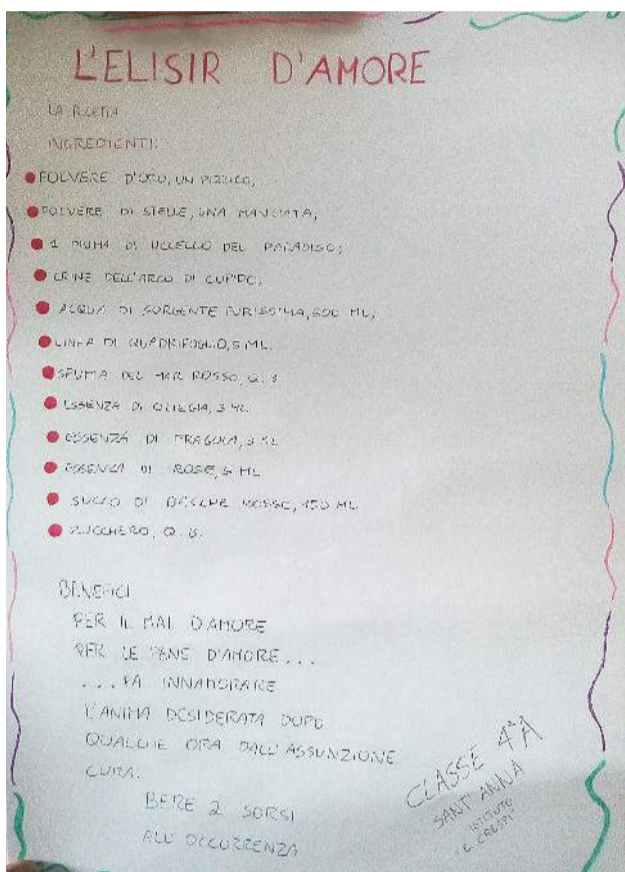 L'ELISIR D'AMORE
LA RICETTA
INGREDIENTI:
POLVERE D'ORO, UN PIZZICO;
POLVERE DI STELLE, UNA MANCIATA;
1 PIUMA DI UCCELLO DEL PARADISO;
CRINE DELL'ARCO DI CUPIDO;
ACQUA DI SORGENTE PURISSIMA, 500 ML;
LINFA DI QUADRIFOGLIO, 5 ML.
SPUMA DEL MAR ROSSO, Q. B.
ESSENZA DI CILIEGIA, 3 ML
ESSENZA DI FRAGOLA, 3 ML
ESSENZA DI ROSE, ML
SUCCO DI BACCHE ROSSE, 150 ML
ZUCCHERO, Q. B.
BENEFICI
PER IL MAL D'AMORE
PER LE PENE D'AMORE...
...FA INNAMORARE
L'ANIMA DESIDERATA DOPO
QUALCHE ORA DALL'ASSUNZIONE
CURA:
BERE 2 SORSI
ALL'OCCORRENZA
CLASSE 4ªA
SANT'ANNA
ISTITUTO
CRESPI